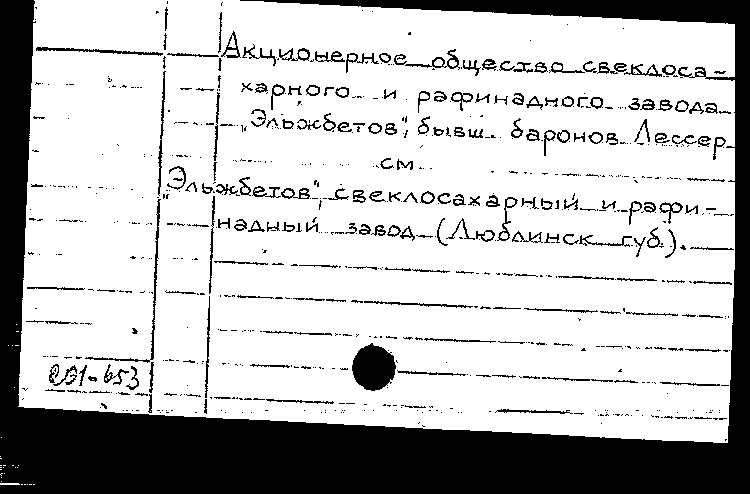 Акционерное общество свеклоса-
харного и рафинадного завода
„Эльжбетов", бывш. баронов Лессер
см
„Эльжбетов", свеклосахарный и рафи-
надный завод (Люблинск губ.).
201-653